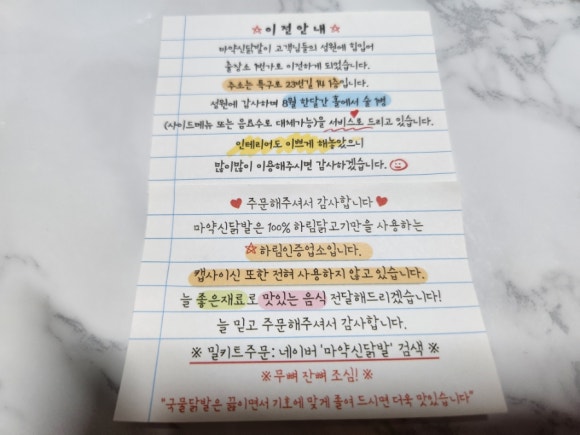 ☆이전안내☆
마약신닭발이 고객님들의 성원에 힘입어
출장소 옆가로 이전하게 되었습니다.
주소는 특구로 23번길 14 1층입니다.
성원에 감사하며 8월 한달간 홀에서 술 1병
(사이드메뉴 또는 음료수로 대체가능)을 서비스로 드리고 있습니다.
인테리어도 이쁘게 해놓았으니
많이많이 이용해주시면 감사하겠습니다.
♥ 주문해주셔서 감사합니다 ♥
마약신닭발은 100% 하림닭고기만을 사용하는
☆하림인증업소입니다.
캡사이신 또한 전혀 사용하지 않고 있습니다.
늘 좋은재료로 맛있는 음식 전달해드리겠습니다!
늘 믿고 주문해주셔서 감사합니다.
※ 밀키트주문: 네이버 '마약신닭발' 검색 ※
※무뼈 잔뼈 조심! ※
"국물닭발은 끓이면서 기호에 맞게 졸여 드시면 더욱 맛있습니다"